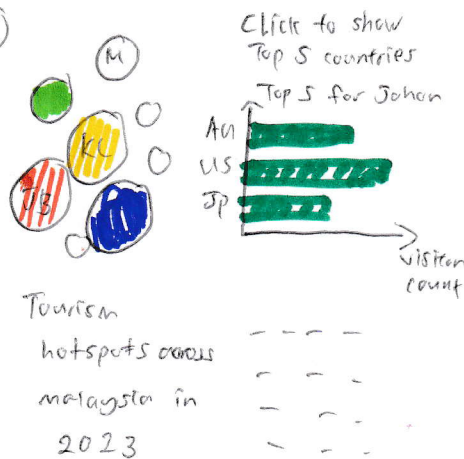 Click to show
Top 5 countries
Top 5 for Johor
M
AU
KL
US
JB
JP
visitor
count
Tourism
hotspots across
malaysia in
2023